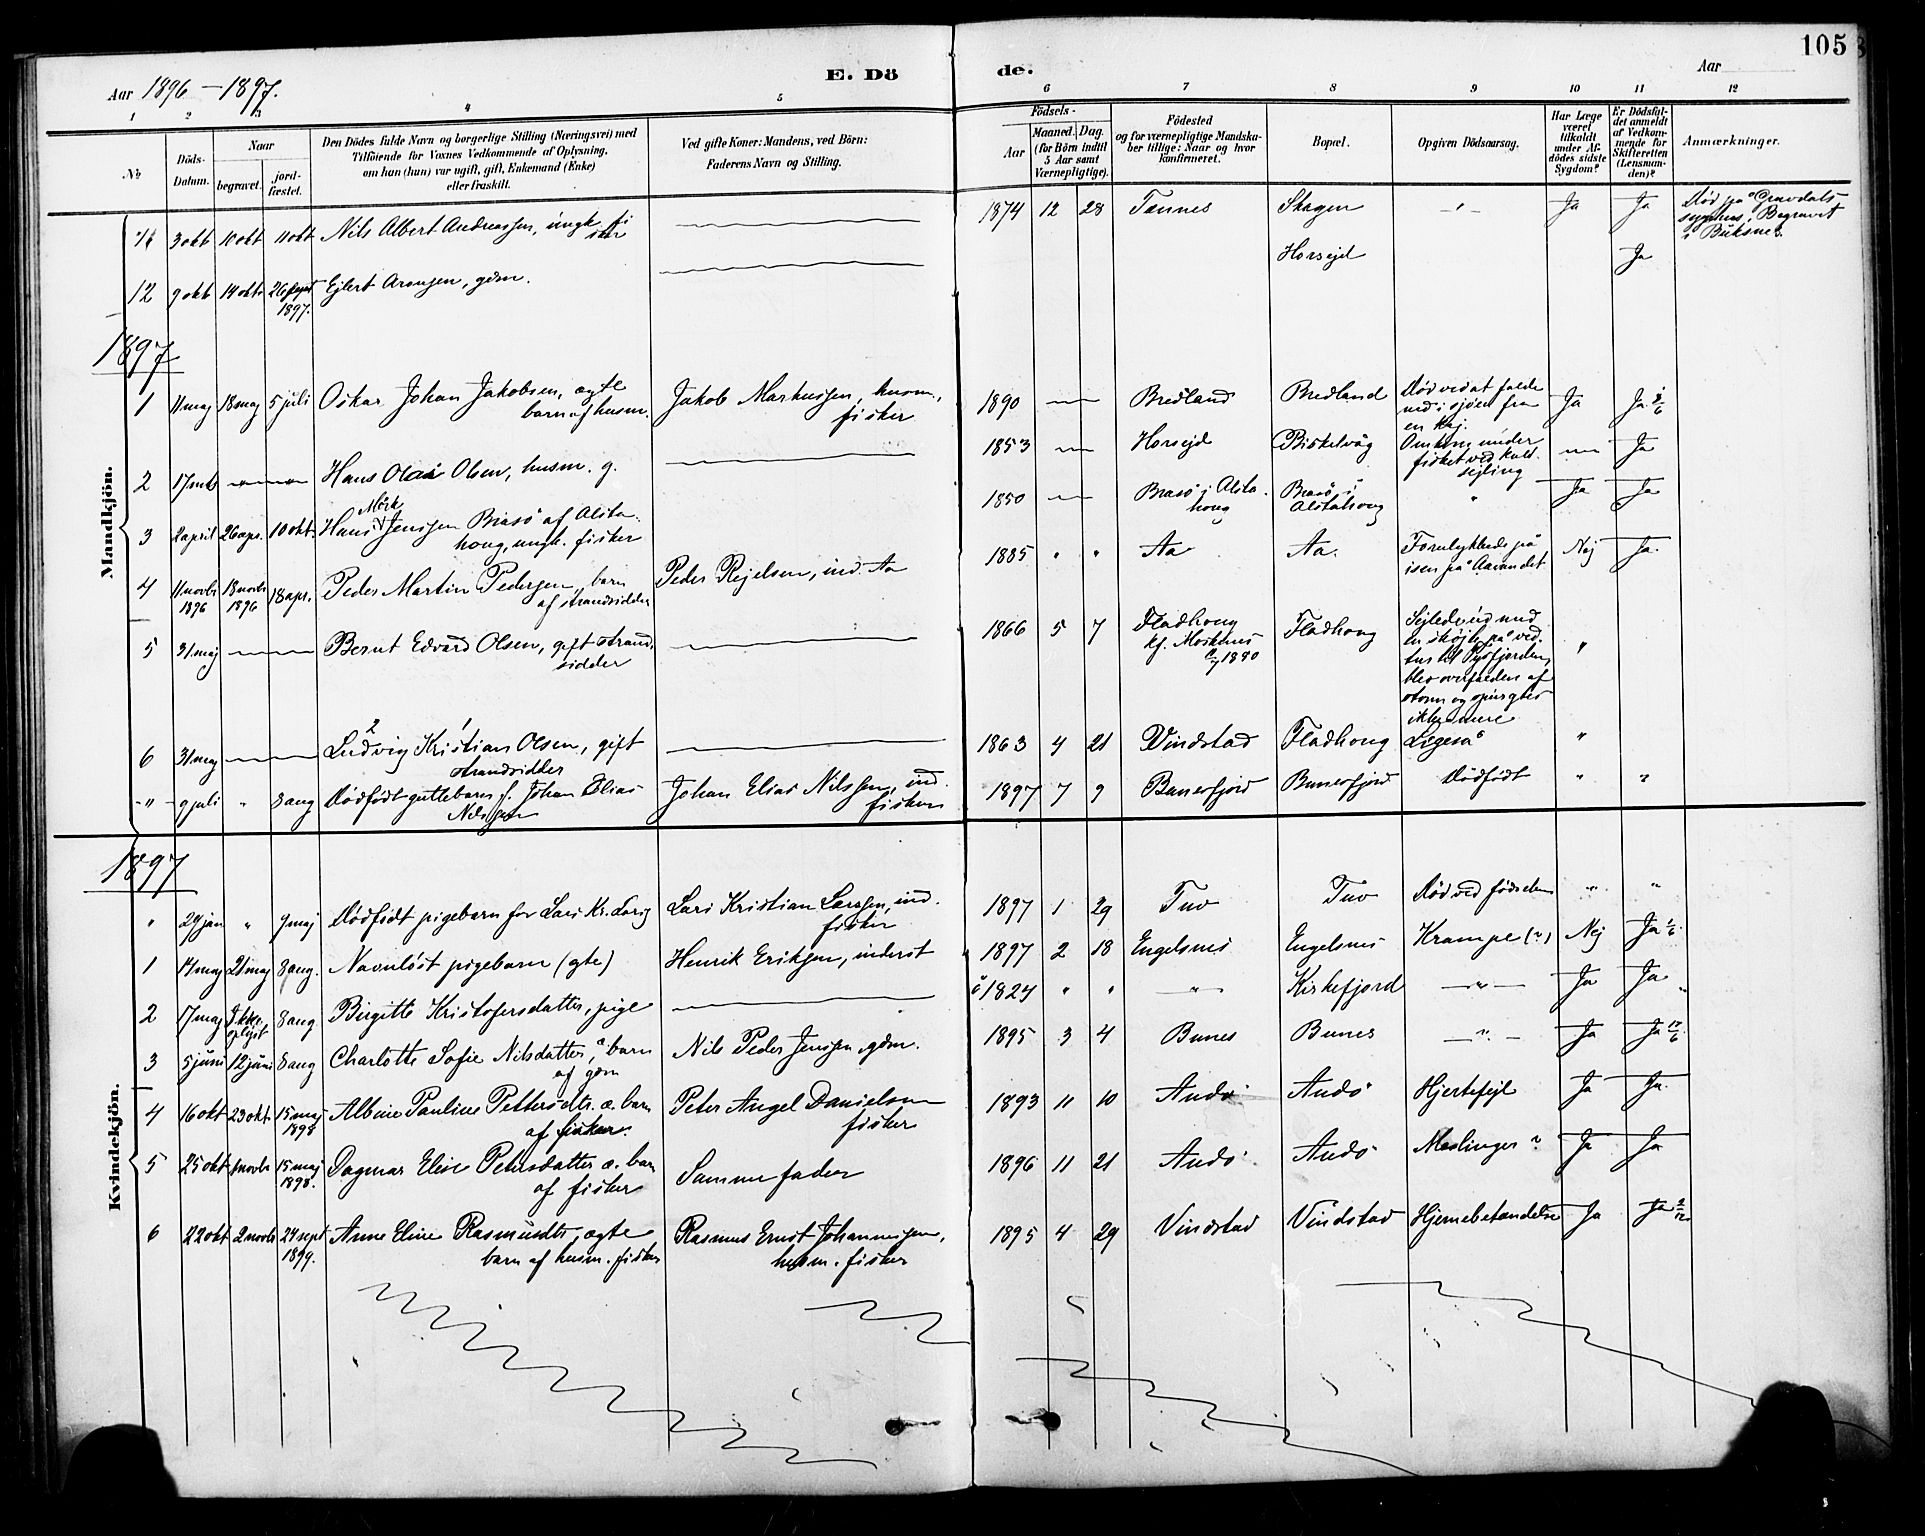 105
E. Dö
de.
Aar 1896 – 1897.
Aar
1 2 3 4 5 6 7 8 9 10 11 12
№
Döds-Datum.
Naar
begravet.
jord-fæstet.
Den Dödes fulde Navn og borgerlige Stilling (Næringsvei) med
Tilföiende for Voxnes Vedkommende af Oplysning,
om han (hun) var ugift, gift, Enkemand (Enke)
eller fraskilt.
Ved gifte Koner: Mandens, ved Börn:
Faderens Navn og Stilling.
Födsels-
Aar
Maaned. Dag.
(for Börn indtil
5 Aar samt
Værnepligtige).
Födested
og for værnepligtige Mandska-
ber tillige: Naar og hvor
konfirmeret.
Bopæl.
Opgiven Dödsaarsag.
Har Læge
været
tilkaldt
under Af-
dödes sidste
Sygdom?
Er Dödsfal-
det anmeldt
af Vedkom-
mende for
Skifteretten
(Lensman-
den)?
Anmærkninger.
Mandkjön.
11 3 okt 10 okt 11 okt Nils Albert Andreassen, ungk. fi
sker
1874 12 28 Tennes Skagen " Ja Ja Död på Gravdals
sygehus. Begravet
i Buksnes.
12 9 okt 14 okt 26 sept
1897. Ejlert Aronsen, gdm. Horsejd Ja
1897
1 11 maj 18 maj 5 juli Oskar Johan Jakobsen, ægte
barn af husm. Jakob Markussen, husm.,
fisker 1890 Bredland Bredland Död ved at falde
ned i sjöen fra
en kaj. Ja Ja
2 17 Hans Olai Olsen, husm. g. 1853 Horsejd Birkelvåg Omkom under
fisket ved kuld-
sejling Ja
3 2 april 26 apr. 10 okt. Hans Mörk Jenssen Brasö af Alsta-
houg, ungk. fisker 1850 Brasö i Alsta-
houg Brasö i
Alstahoug " Ja Ja
4 11 novbr
1896 18 novbr
1896 18 apr. Peder Martin Pedersen, barn
af strandsidder Peder Rejelsen, ind. Aa 1885 " " Aa Aa. Forulykkede på
isen på Aavandet Nej Ja.
5 31 maj Bernt Edvard Olsen, gift strand-
sidder 1866 5 7 Fladhoug
kf. Moskenes
1880 Fladhoug Sejlede ud med
en sköjte på ved-
tur til Tysfjorden,
blev overfalden af
storm og spurgtes
ikke mere "
6 31 maj Ludvig Kristian Olsen, gift
strandsidder 1863 4 21 Vindstad Fladhoug Ligeså "
" 9 juli " 8 aug Dödfödt guttebarn f. Johan Elias
Nilssen Johan Elias Nilssen, ind.
fisker 1897 7 9 Bunesfjord Bunesfjord Dödfödt " "
1897
Kvindekjön.
" 29 jan " 9 maj Dödfödt pigebarn for Lars Kr. Lars Lars Kristian Larssen, ind.
fisker 1897 1 29 Tuv Tuv Död ved födselen " "
1 14 maj 21 maj 8 aug. Navnlöst pigebarn (ægte) Henrik Eriksen, inderst 1897 2 18 Engelsnes Engelsnes Krampe (?) Nej Ja 1/6
2 17 maj Ikke
oplyst 8 aug Birgitte Kristofersdatter, pige 1824 " " " Kirkefjord " Ja Ja "
3 5 juni 12 juni 8 aug Charlotte Sofie Nilsdatter, æ. barn
af gdm Nils Peder Jenssen, gdm. 1895 3 4 Bunes Bunes " Ja Ja
4 16 okt 23 okt. 15 maj
1898 Albine Pauline Pettersdtr. æ. barn
af fisker. Peter Angel Danielsen
fisker 1893 11 10 Andö Andö Hjertefejl Ja Ja.
5 25 okt 1 novbr 15 maj
1898. Dagmar Eline Petersdatter æ. barn
af fisker Samme fader 1896 11 21 Andö Andö Meslinger ? Ja Ja
6 22 okt 2 novbr 24 sept
1899. Anne Eline Rasmusdtr, ægte
barn af husm. fisker Rasmus Ernst Johannessen,
husm. fisker 1895 4 29 Vindstad Vindstad Hjernebetændelse Ja Ja 2/12